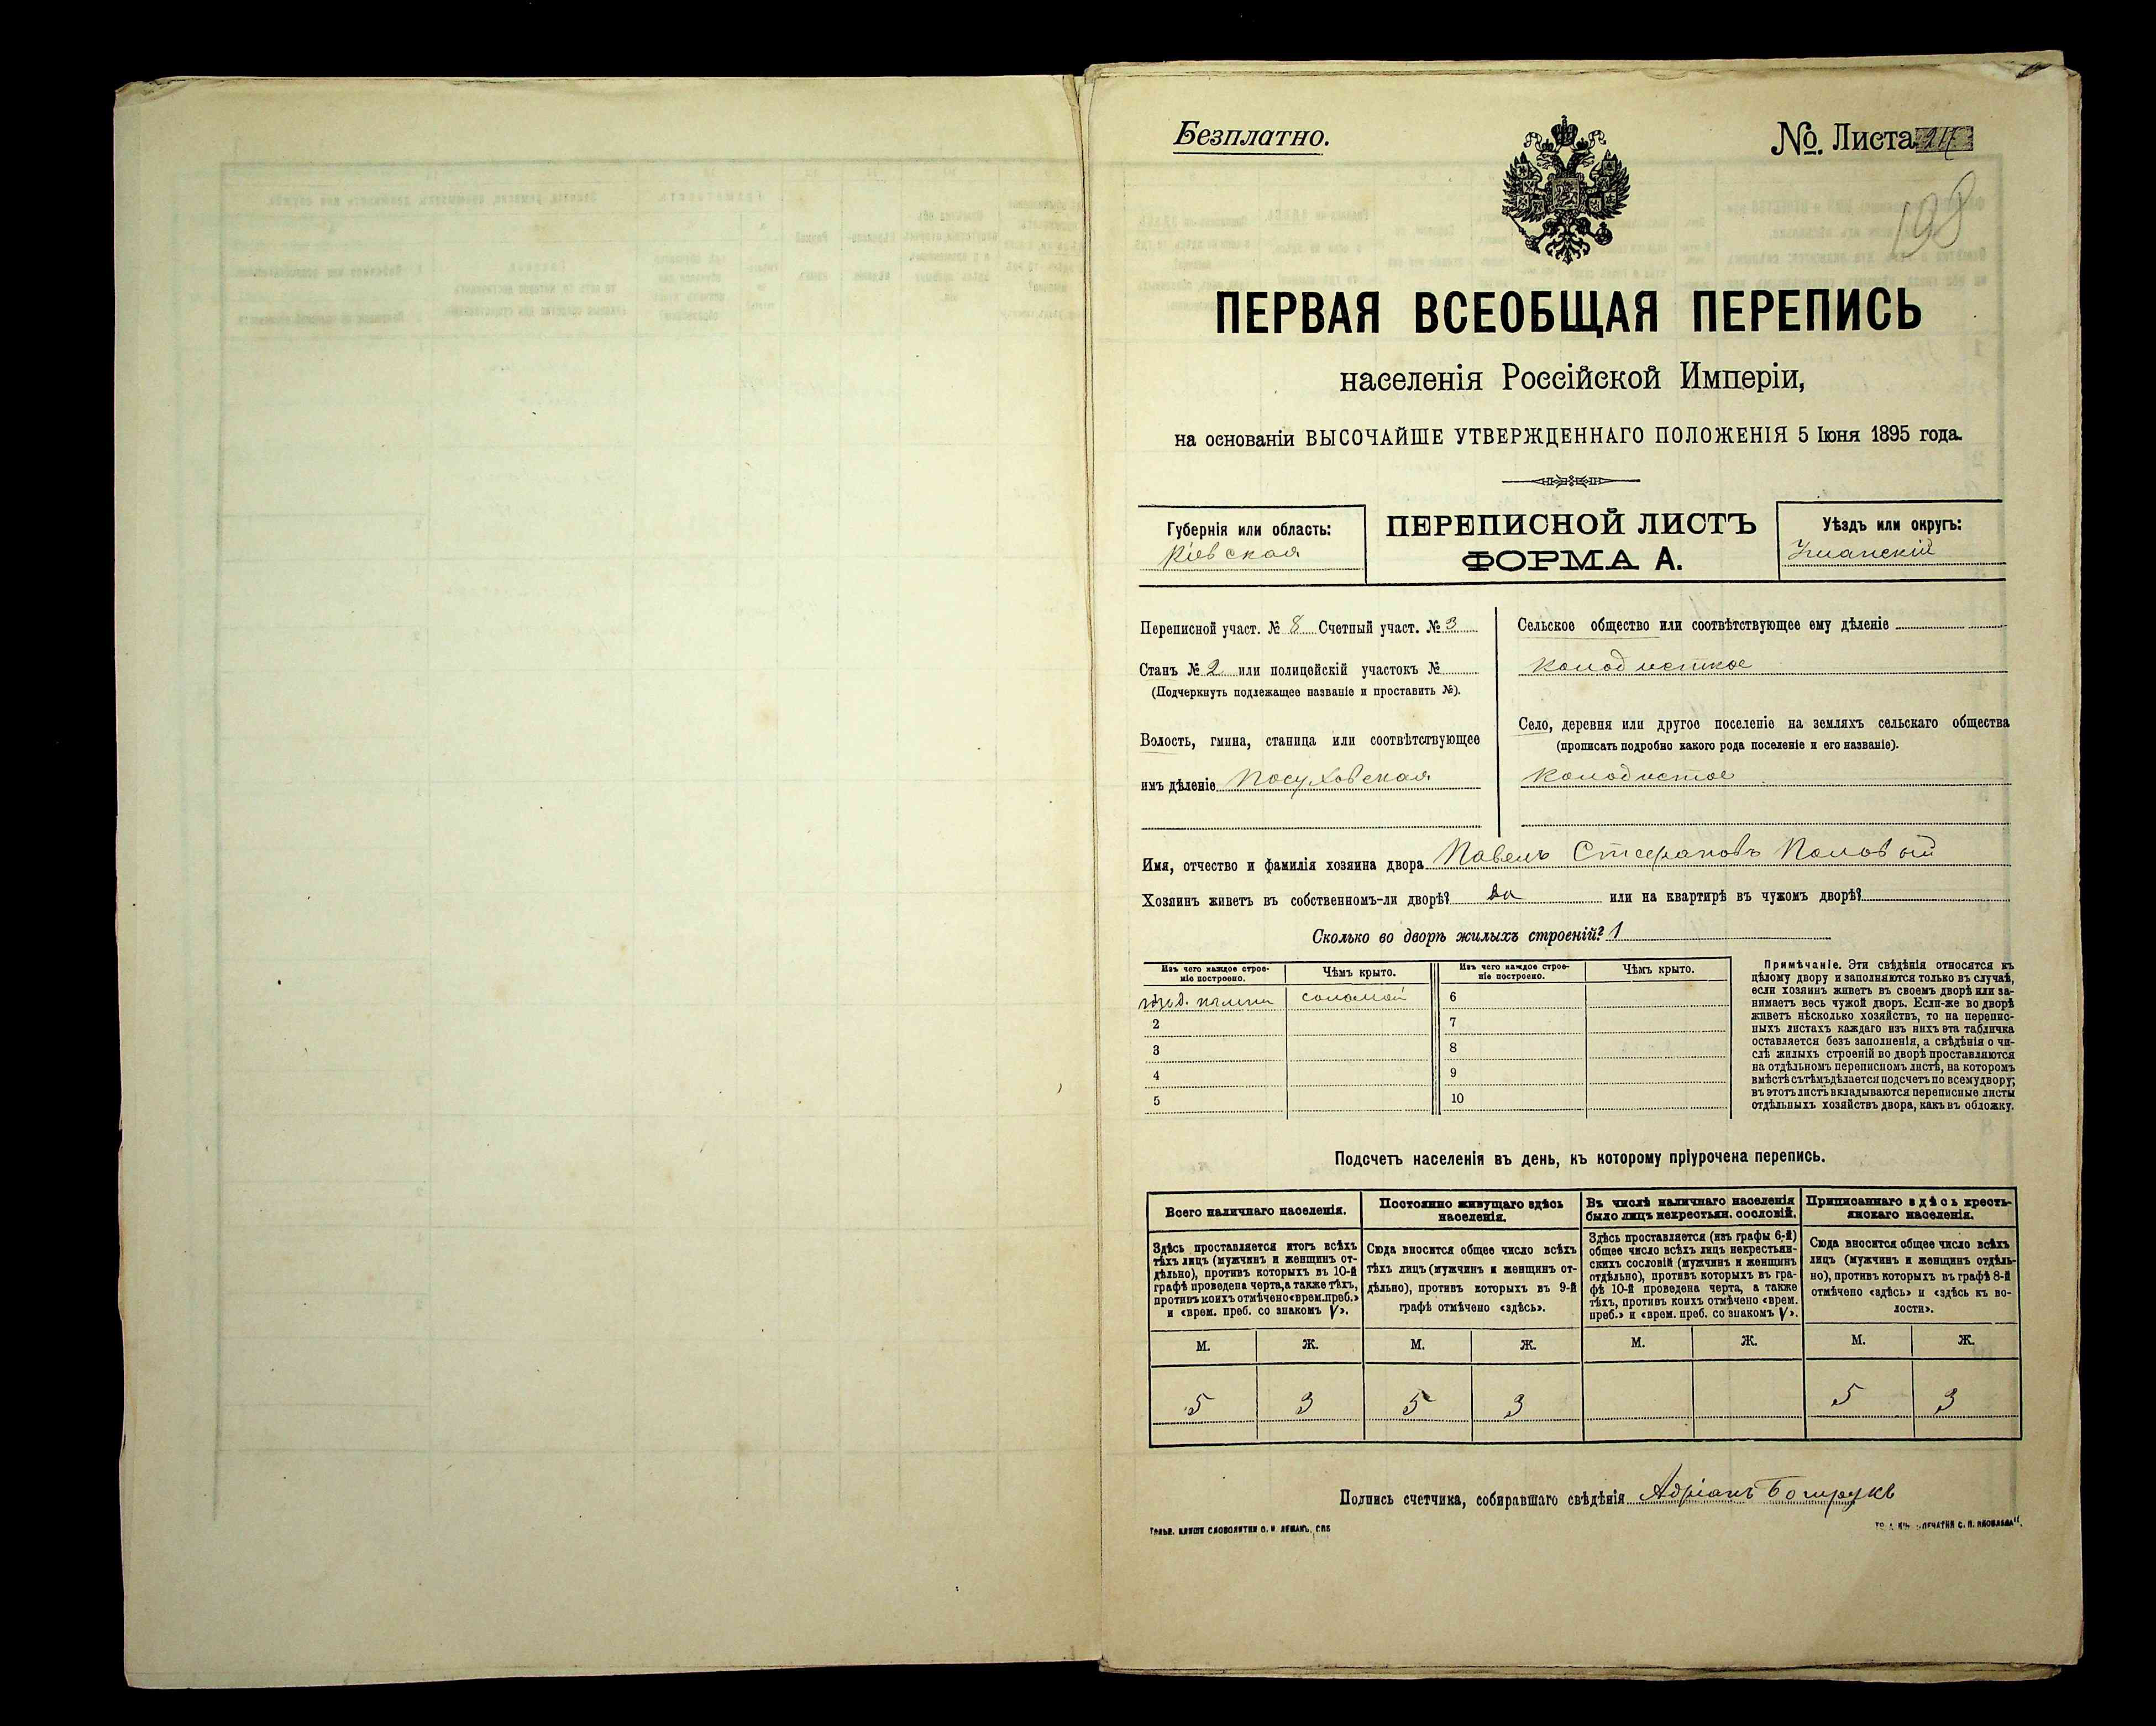 Безплатно.
№. Листа 24
198
ПЕРВАЯ ВСЕОБЩАЯ ПЕРЕПИСЬ
населенія Россійской Имперіи,
на основаніи ВЫСОЧАЙШЕ УТВЕРЖДЕННАГО ПОЛОЖЕНІЯ 5 Іюня 1895 года.
Губернія или область:
Кіевская
ПЕРЕПИСНОЙ ЛИСТЪ
ФОРМА А.
Уѣздъ или округъ:
Уманскій
Переписной участ. № 8 Счетный участ. № 3
Станъ № 2 или полицейскій участокъ №
(Подчеркнуть подлежащее названіе и проставить №).
Волость, гмина, станица или соотвѣтствующее
имъ дѣленіе Посуховская
Сельское общество или соотвѣтствующее ему дѣленіе
Колодисткое
Село, деревня или другое поселеніе на земляхъ сельскаго общества
(прописать подробно какого рода поселеніе и его названіе).
Колодистое
Имя, отчество и фамилія хозяина двора Павелъ Стефановъ Половый
Хозяинъ живетъ въ собственномъ-ли дворѣ? да или на квартирѣ въ чужомъ дворѣ?
Сколько во дворѣ жилыхъ строеній? 1
Изъ чего каждое строеніе построено.
Чѣмъ крыто.
Изъ чего каждое строеніе построено.
Чѣмъ крыто.
соломой
6
2
7
3
8
4
9
5
10
Примѣчаніе. Эти свѣдѣнія относятся къ
цѣлому двору и заполняются только въ случаѣ,
если хозяинъ живетъ въ своемъ дворѣ или за-
нимаетъ весь чужой дворъ. Если-же во дворѣ
живетъ нѣсколько хозяйствъ, то на перепис-
ныхъ листахъ каждаго изъ нихъ эта табличка
оставляется безъ заполненія, а свѣдѣнія о чи-
слѣ жилыхъ строеній во дворѣ проставляются
на отдѣльномъ переписномъ листѣ, на которомъ
вмѣстѣ съ тѣмъ дѣлается подсчетъ по всему двору;
въ этотъ листъ вкладываются переписные листы
отдѣльныхъ хозяйствъ двора, какъ въ обложку.
Подсчетъ населенія въ день, къ которому пріурочена перепись.
Всего наличнаго населенія.
Здѣсь проставляется итогъ всѣхъ
тѣхъ лицъ (мужчинъ и женщинъ от-
дѣльно), противъ которыхъ въ 10-й
графѣ проведена черта, а также тѣхъ,
противъ коихъ отмѣчено «врем. преб.»
и «врем. преб. со знакомъ V».
Постоянно живущаго здѣсь
населенія.
Сюда вносится общее число всѣхъ
тѣхъ лицъ (мужчинъ и женщинъ от-
дѣльно), противъ которыхъ въ 9-й
графѣ отмѣчено «здѣсь».
Въ числѣ наличнаго населенія
было лицъ некрестьян. сословій.
Здѣсь проставляется (изъ графы 6-й)
общее число всѣхъ лицъ некрестьян-
скихъ сословій (мужчинъ и женщинъ
отдѣльно), противъ которыхъ въ гра-
фѣ 10-й проведена черта, а также
тѣхъ, противъ коихъ отмѣчено «врем.
преб.» и «врем. преб. со знакомъ V».
Приписаннаго здѣсь кресть-
янскаго населенія.
Сюда вносится общее число всѣхъ
лицъ (мужчинъ и женщинъ отдѣль-
но), противъ которыхъ въ графѣ 8-й
отмѣчено «здѣсь» и «здѣсь къ во-
лости».
М. Ж. М. Ж. М. Ж. М. Ж.
5 3 5 3 5 3
Подпись счетчика, собиравшаго свѣдѣнія Адріанъ
СЛОВОЛИТНИ О. И. ЛЕМАНЪ, СПБ
ПЕЧАТНИ С. П. ЯКОВЛЕВА".